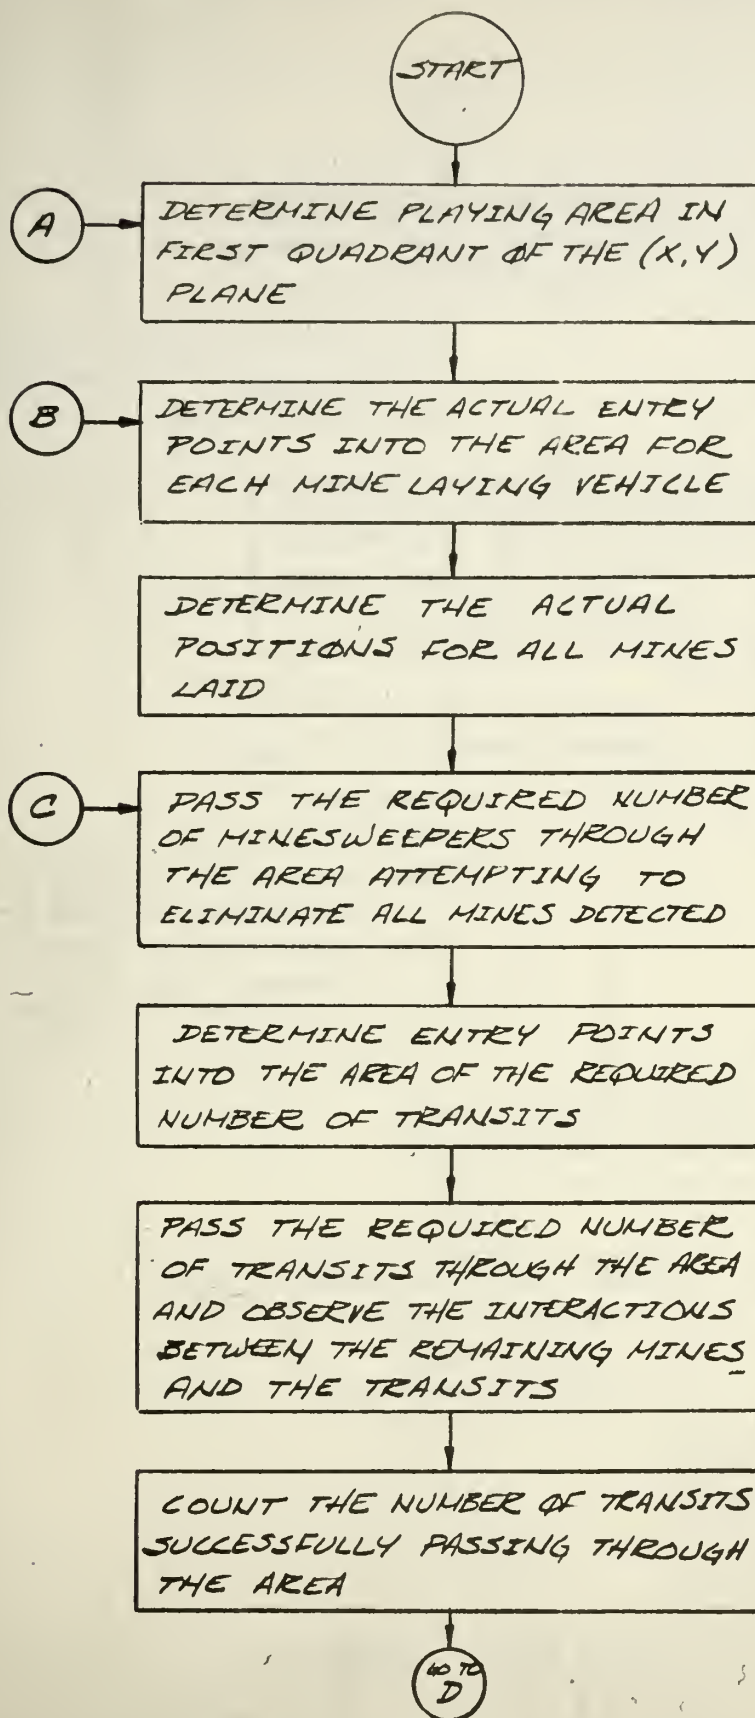 START
A
DETERMINE PLAYING AREA IN
FIRST QUADRANT OF THE (X,Y)
PLANE
B
DETERMINE THE ACTUAL ENTRY
POINTS INTO THE AREA FOR
EACH MINE LAYING VEHICLE
DETERMINE THE ACTUAL
POSITIONS FOR ALL MINES
LAID
C
PASS THE REQUIRED NUMBER
OF MINESWEEPERS THROUGH
THE AREA ATTEMPTING TO
ELIMINATE ALL MINES DETECTED
DETERMINE ENTRY POINTS
INTO THE AREA OF THE REQUIRED
NUMBER OF TRANSITS
PASS THE REQUIRED NUMBER
OF TRANSITS THROUGH THE AREA
AND OBSERVE THE INTERACTIONS
BETWEEN THE REMAINING MINES
AND THE TRANSITS
COUNT THE NUMBER OF TRANSITS
SUCCESSFULLY PASSING THROUGH
THE AREA
GO TO
D